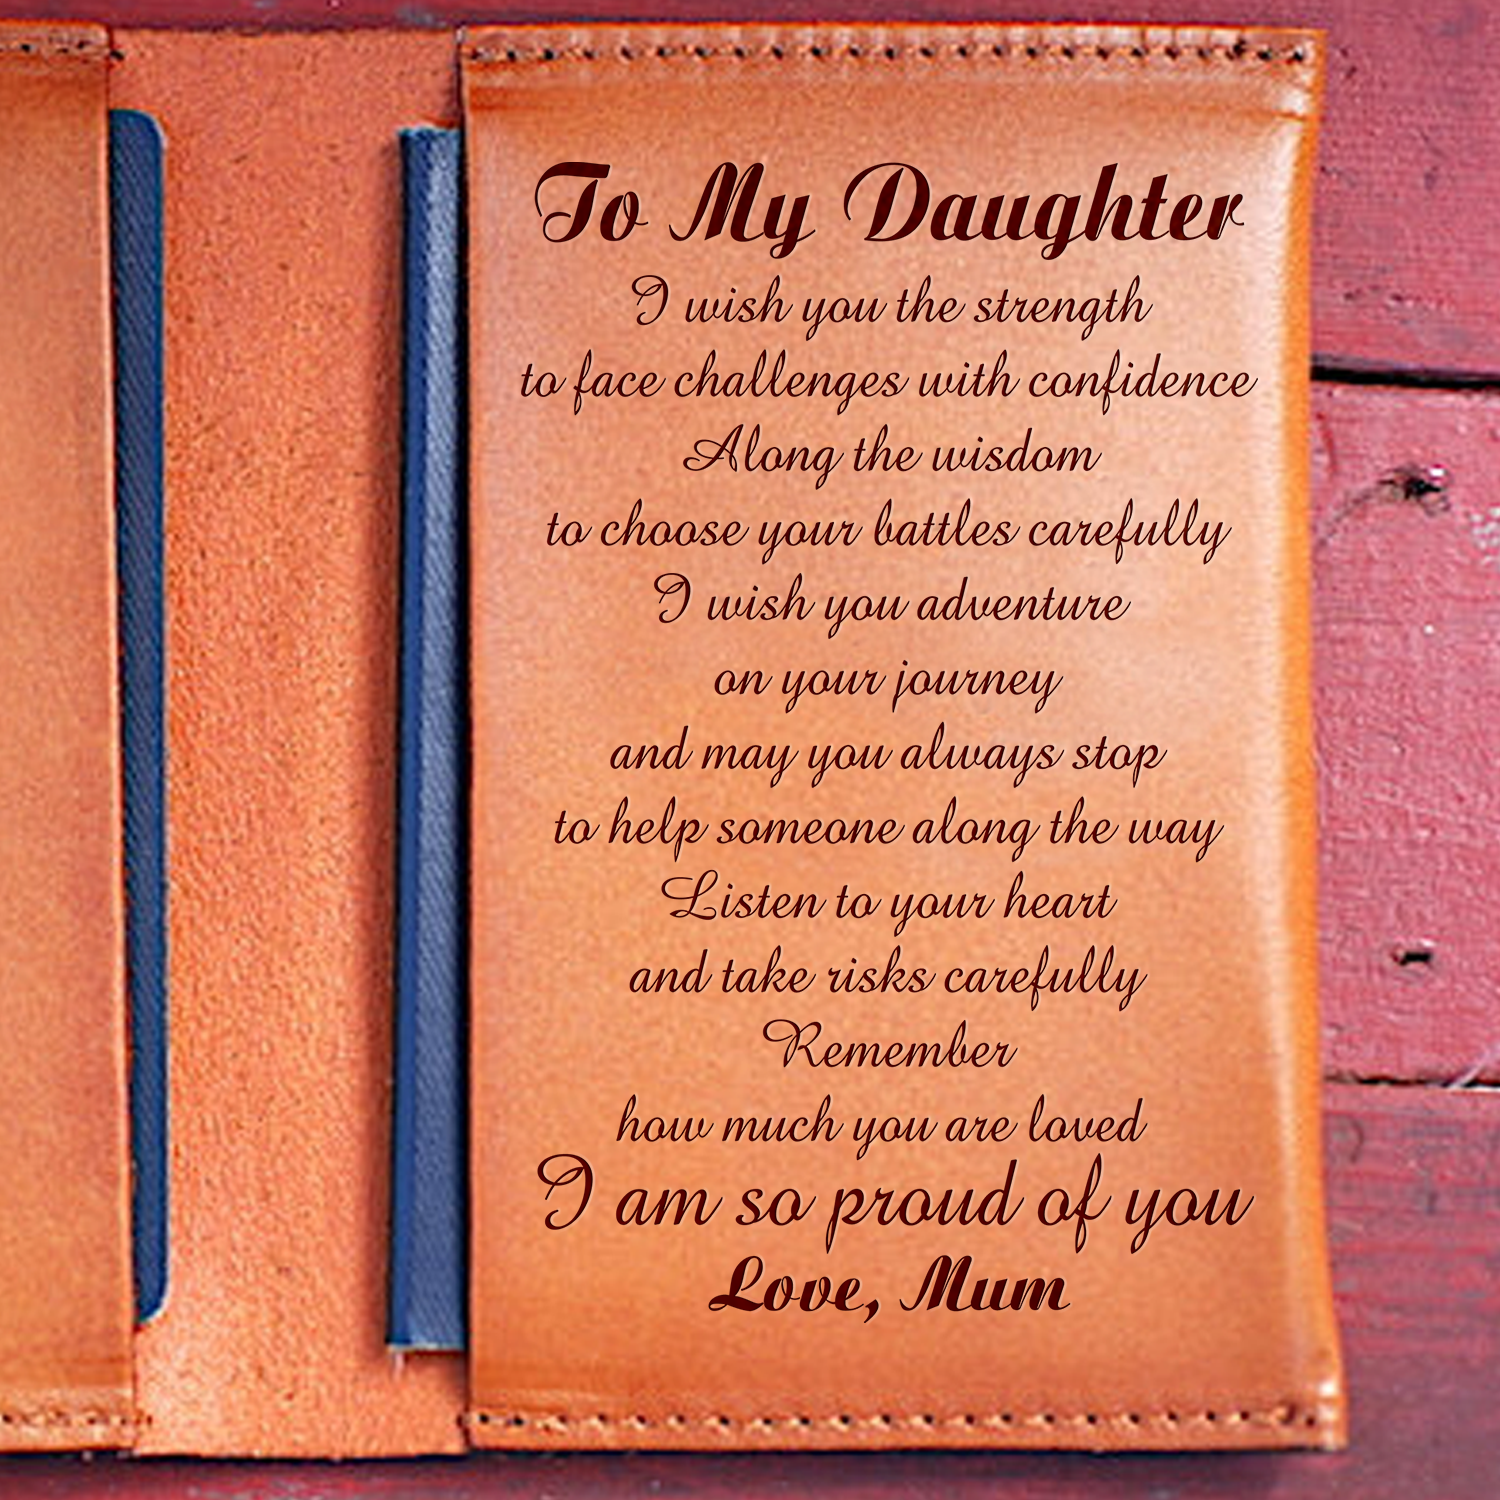 To My Daughter
I wish you the strength
to face challenges with confidence
Along the wisdom
to choose your battles carefully
I wish you adventure
on your journey
and may you always stop
to help someone along the way
Listen to your heart
and take risks carefully
Remember
how much you are loved
I am so proud of you
Love, Mum